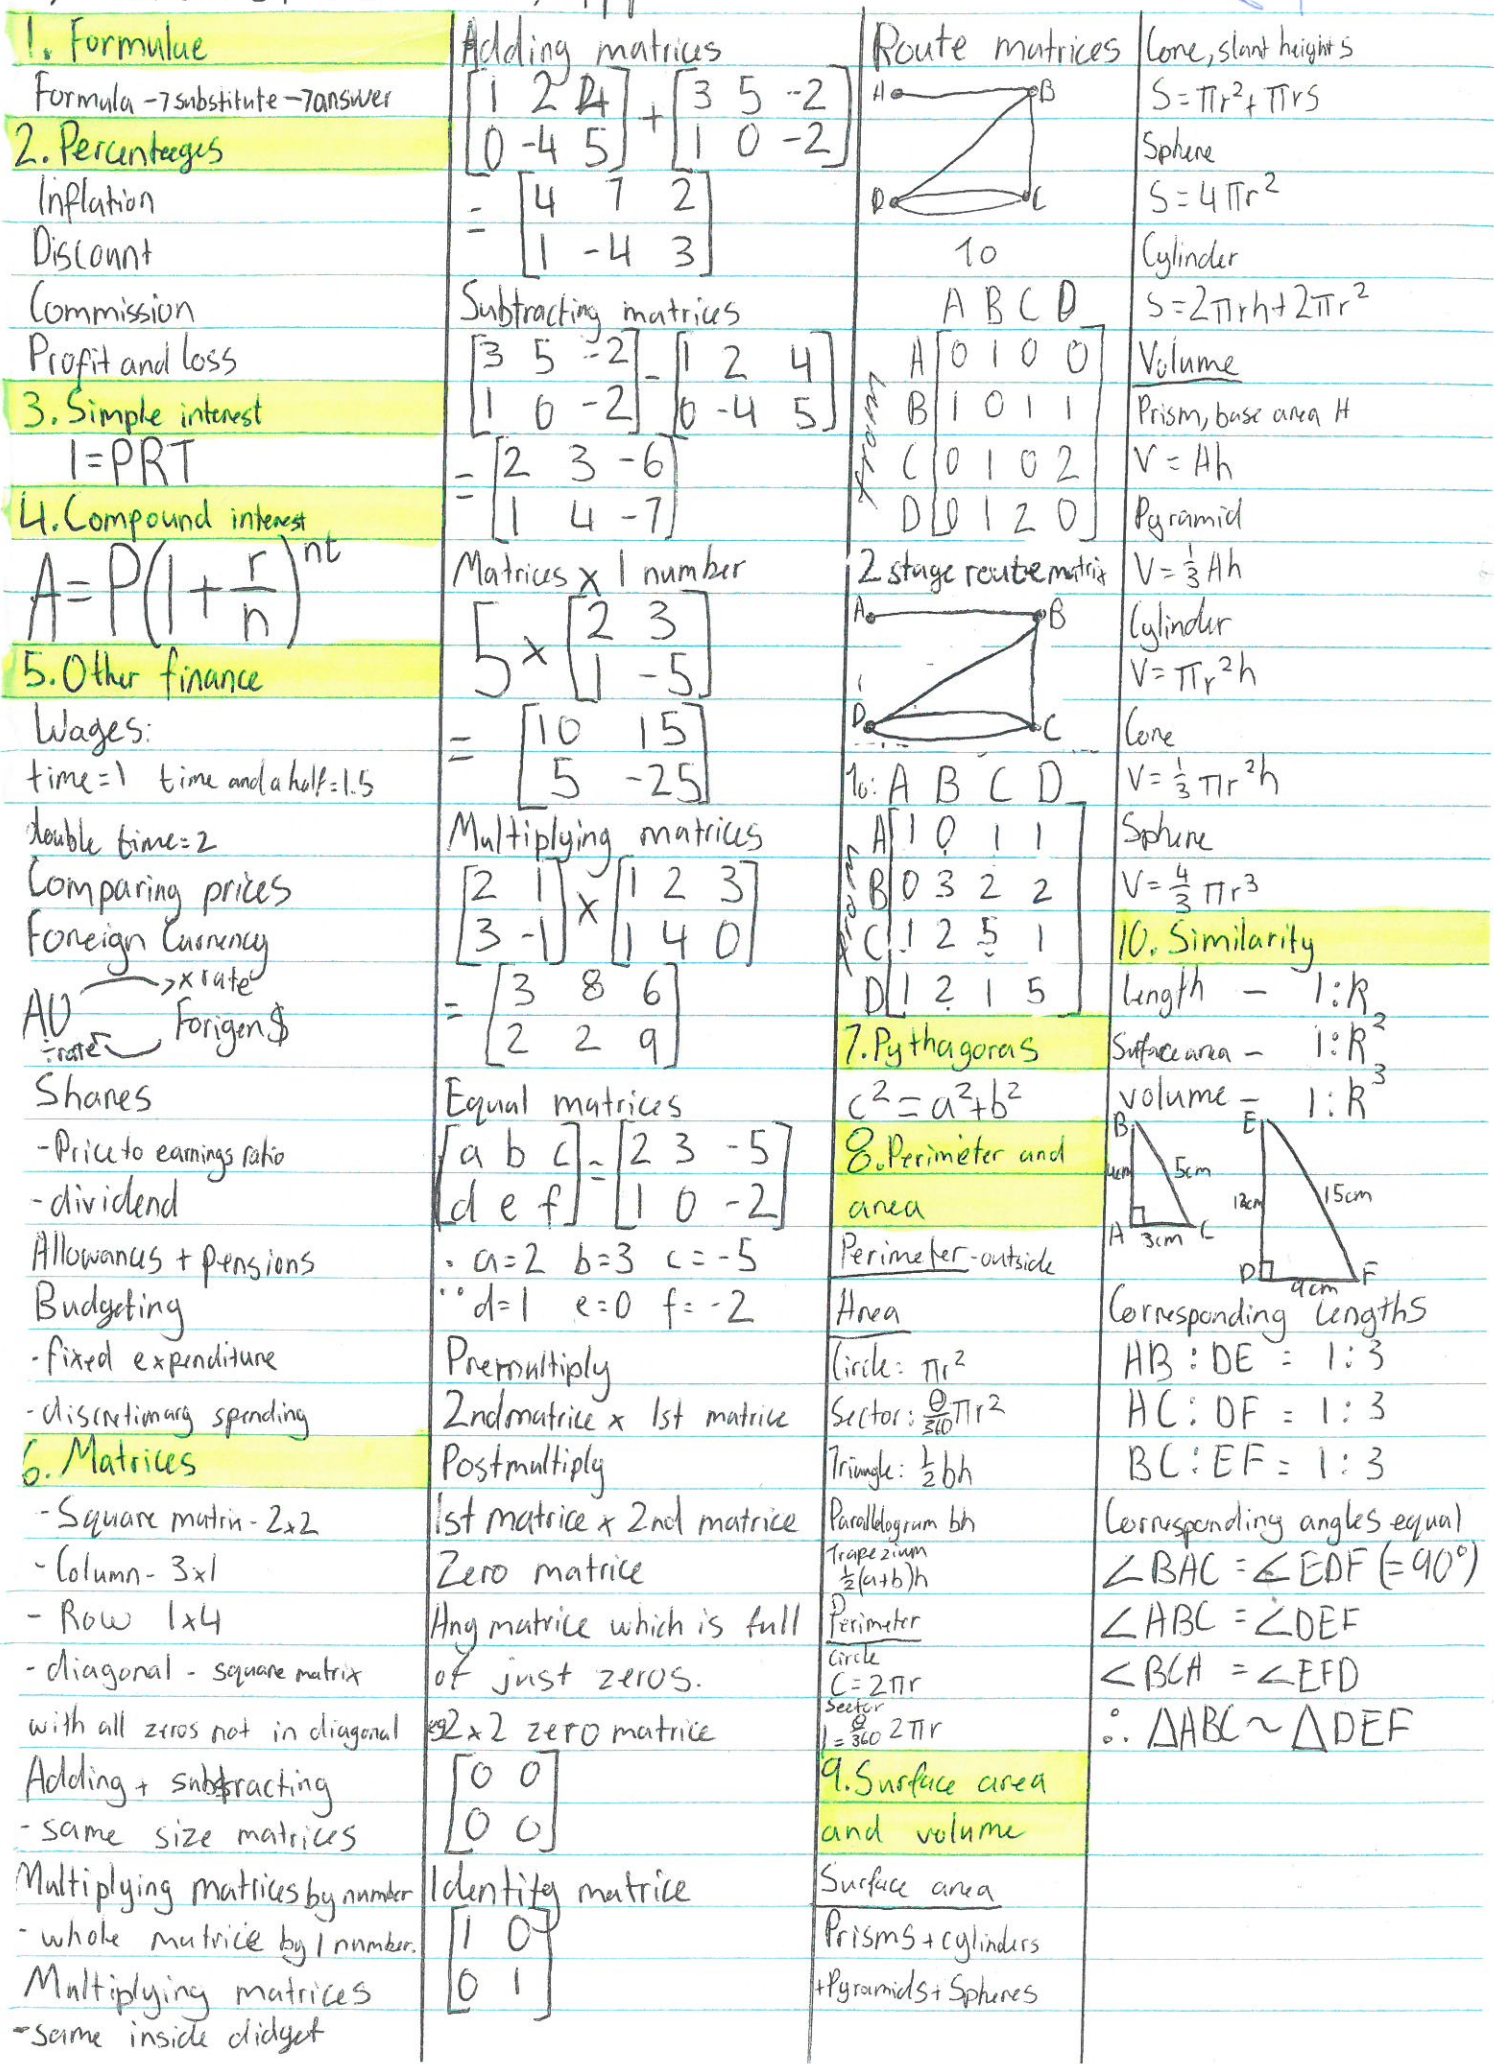 1. Formulae
Formula → substitute → answer
2. Percenteges
Inflation
Discount
Commission
Profit and loss
3. Simple interest
I=PRT
4. Compound interest
A=P(1+r/n)^nt
5. Other finance
Wages:
time=1 time and a half=1.5
double time=2
Comparing prices
Foreign Currency
AU → x rate Forigen $
÷rate
Shares
-Price to earnings ratio
-dividend
Allowances + pensions
Budgeting
-fixed expenditure
-discretionary spending
6. Matrices
-Square matrix - 2x2
-Column - 3x1
-Row 1x4
-diagonal - square matrix
with all zeros not in diagonal
Adding + subtracting
-same size matrices
Multiplying matrices by number
-whole matrice by 1 number.
Multiplying matrices
-same inside didget
Adding matrices
[1 2 4] + [3 5 -2]
[0 -4 5] [1 0 -2]
= [4 7 2]
[1 -4 3]
Subtracting matrices
[3 5 -2] - [1 2 4]
[1 0 -2] [0 -4 5]
= [2 3 -6]
[1 4 -7]
Matrices x 1 number
5 x [2 3]
[1 -5]
= [10 15]
[5 -25]
Multiplying matrices
[2 1] x [1 2 3]
[3 -1] [1 4 0]
= [3 8 6]
[2 2 9]
Equal matrices
[a b c] = [2 3 -5]
[d e f] [1 0 -2]
∴ a=2 b=3 c=-5
d=1 e=0 f=-2
Premultiply
2nd matrice x 1st matrice
Postmultiply
1st matrice x 2nd matrice
Zero matrice
Any matrice which is full
of just zeros.
eg 2x2 zero matrice
[0 0]
[0 0]
Identity matrice
[1 0]
[0 1]
Route matrices
A B
D C
To
A B C D
From
A [0 1 0 0]
B [1 0 1 1]
C [0 1 0 2]
D [0 1 2 0]
2 stage route matrix
A B
D C
To: A B C D
From
A [1 0 1 1]
B [0 3 2 2]
C [1 2 5 1]
D [1 2 1 5]
7. Pythagoras
c²=a²+b²
8. Perimeter and
area
Perimeter - outside
Area
Circle: πr²
Sector: θ/360 πr²
Triangle: ½bh
Parallelogram bh
Trapezium
½(a+b)h
Perimeter
Circle
C=2πr
Sector
l=θ/360 2πr
9. Surface area
and volume
Surface area
Prisms + cylinders
+Pyramids + Spheres
Cone, slant height s
S=πr²+πrs
Sphere
S=4πr²
Cylinder
S=2πrh+2πr²
Volume
Prism, base area A
V=Ah
Pyramid
V=⅓Ah
Cylinder
V=πr²h
Cone
V=⅓πr²h
Sphere
V=4/3 πr³
10. Similarity
length - 1:k
Surface area - 1:k²
volume - 1:k³
B E
4cm 5cm 12cm 15cm
A 3cm C D 9cm F
Corresponding lengths
AB:DE = 1:3
AC:DF = 1:3
BC:EF = 1:3
Corresponding angles equal
∠BAC = ∠EDF (=90°)
∠ABC = ∠DEF
∠BCA = ∠EFD
∴ △ABC ~ △DEF